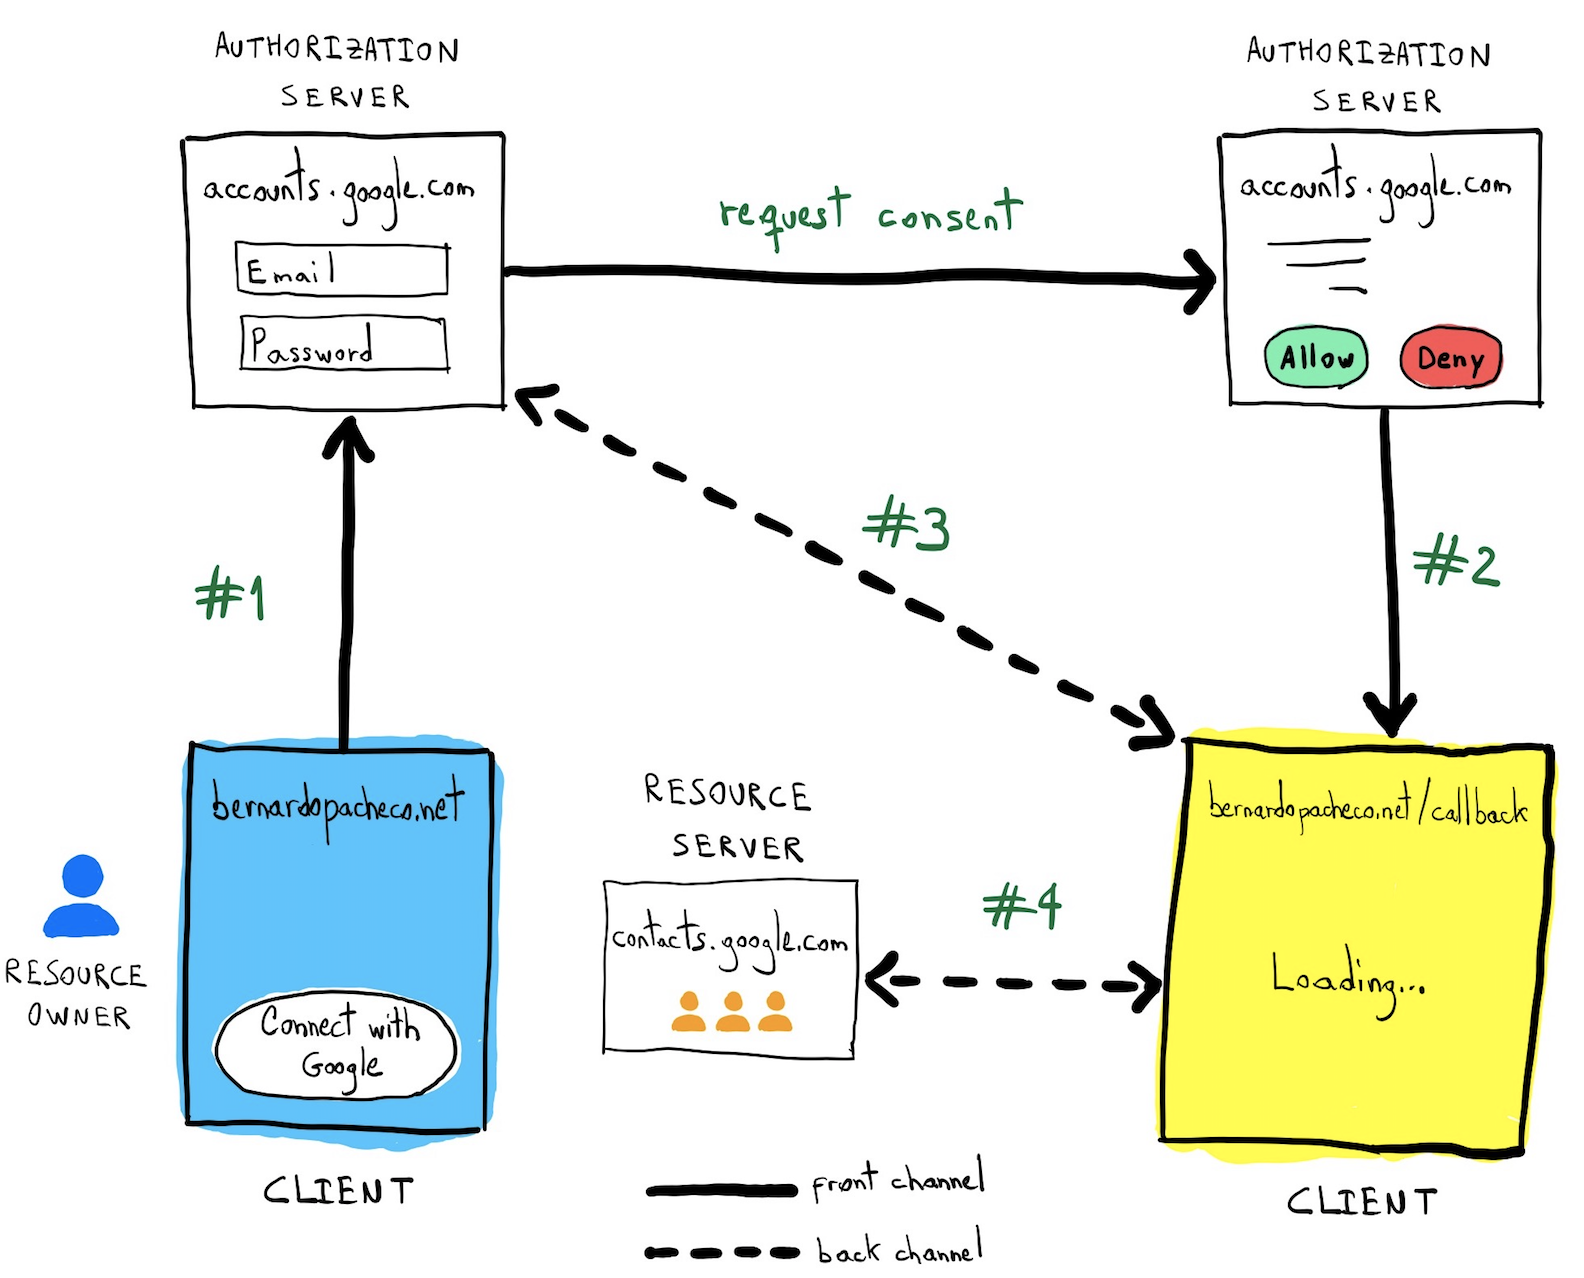 AUTHORIZATION
SERVER
accounts.google.com
Email
Password
request consent
AUTHORIZATION
SERVER
accounts.google.com
Allow
Deny
#1
#3
#2
bernardopacheco.net
Connect with
Google
CLIENT
RESOURCE
OWNER
RESOURCE
SERVER
contacts.google.com
#4
bernardopacheco.net/callback
Loading...
CLIENT
front channel
back channel